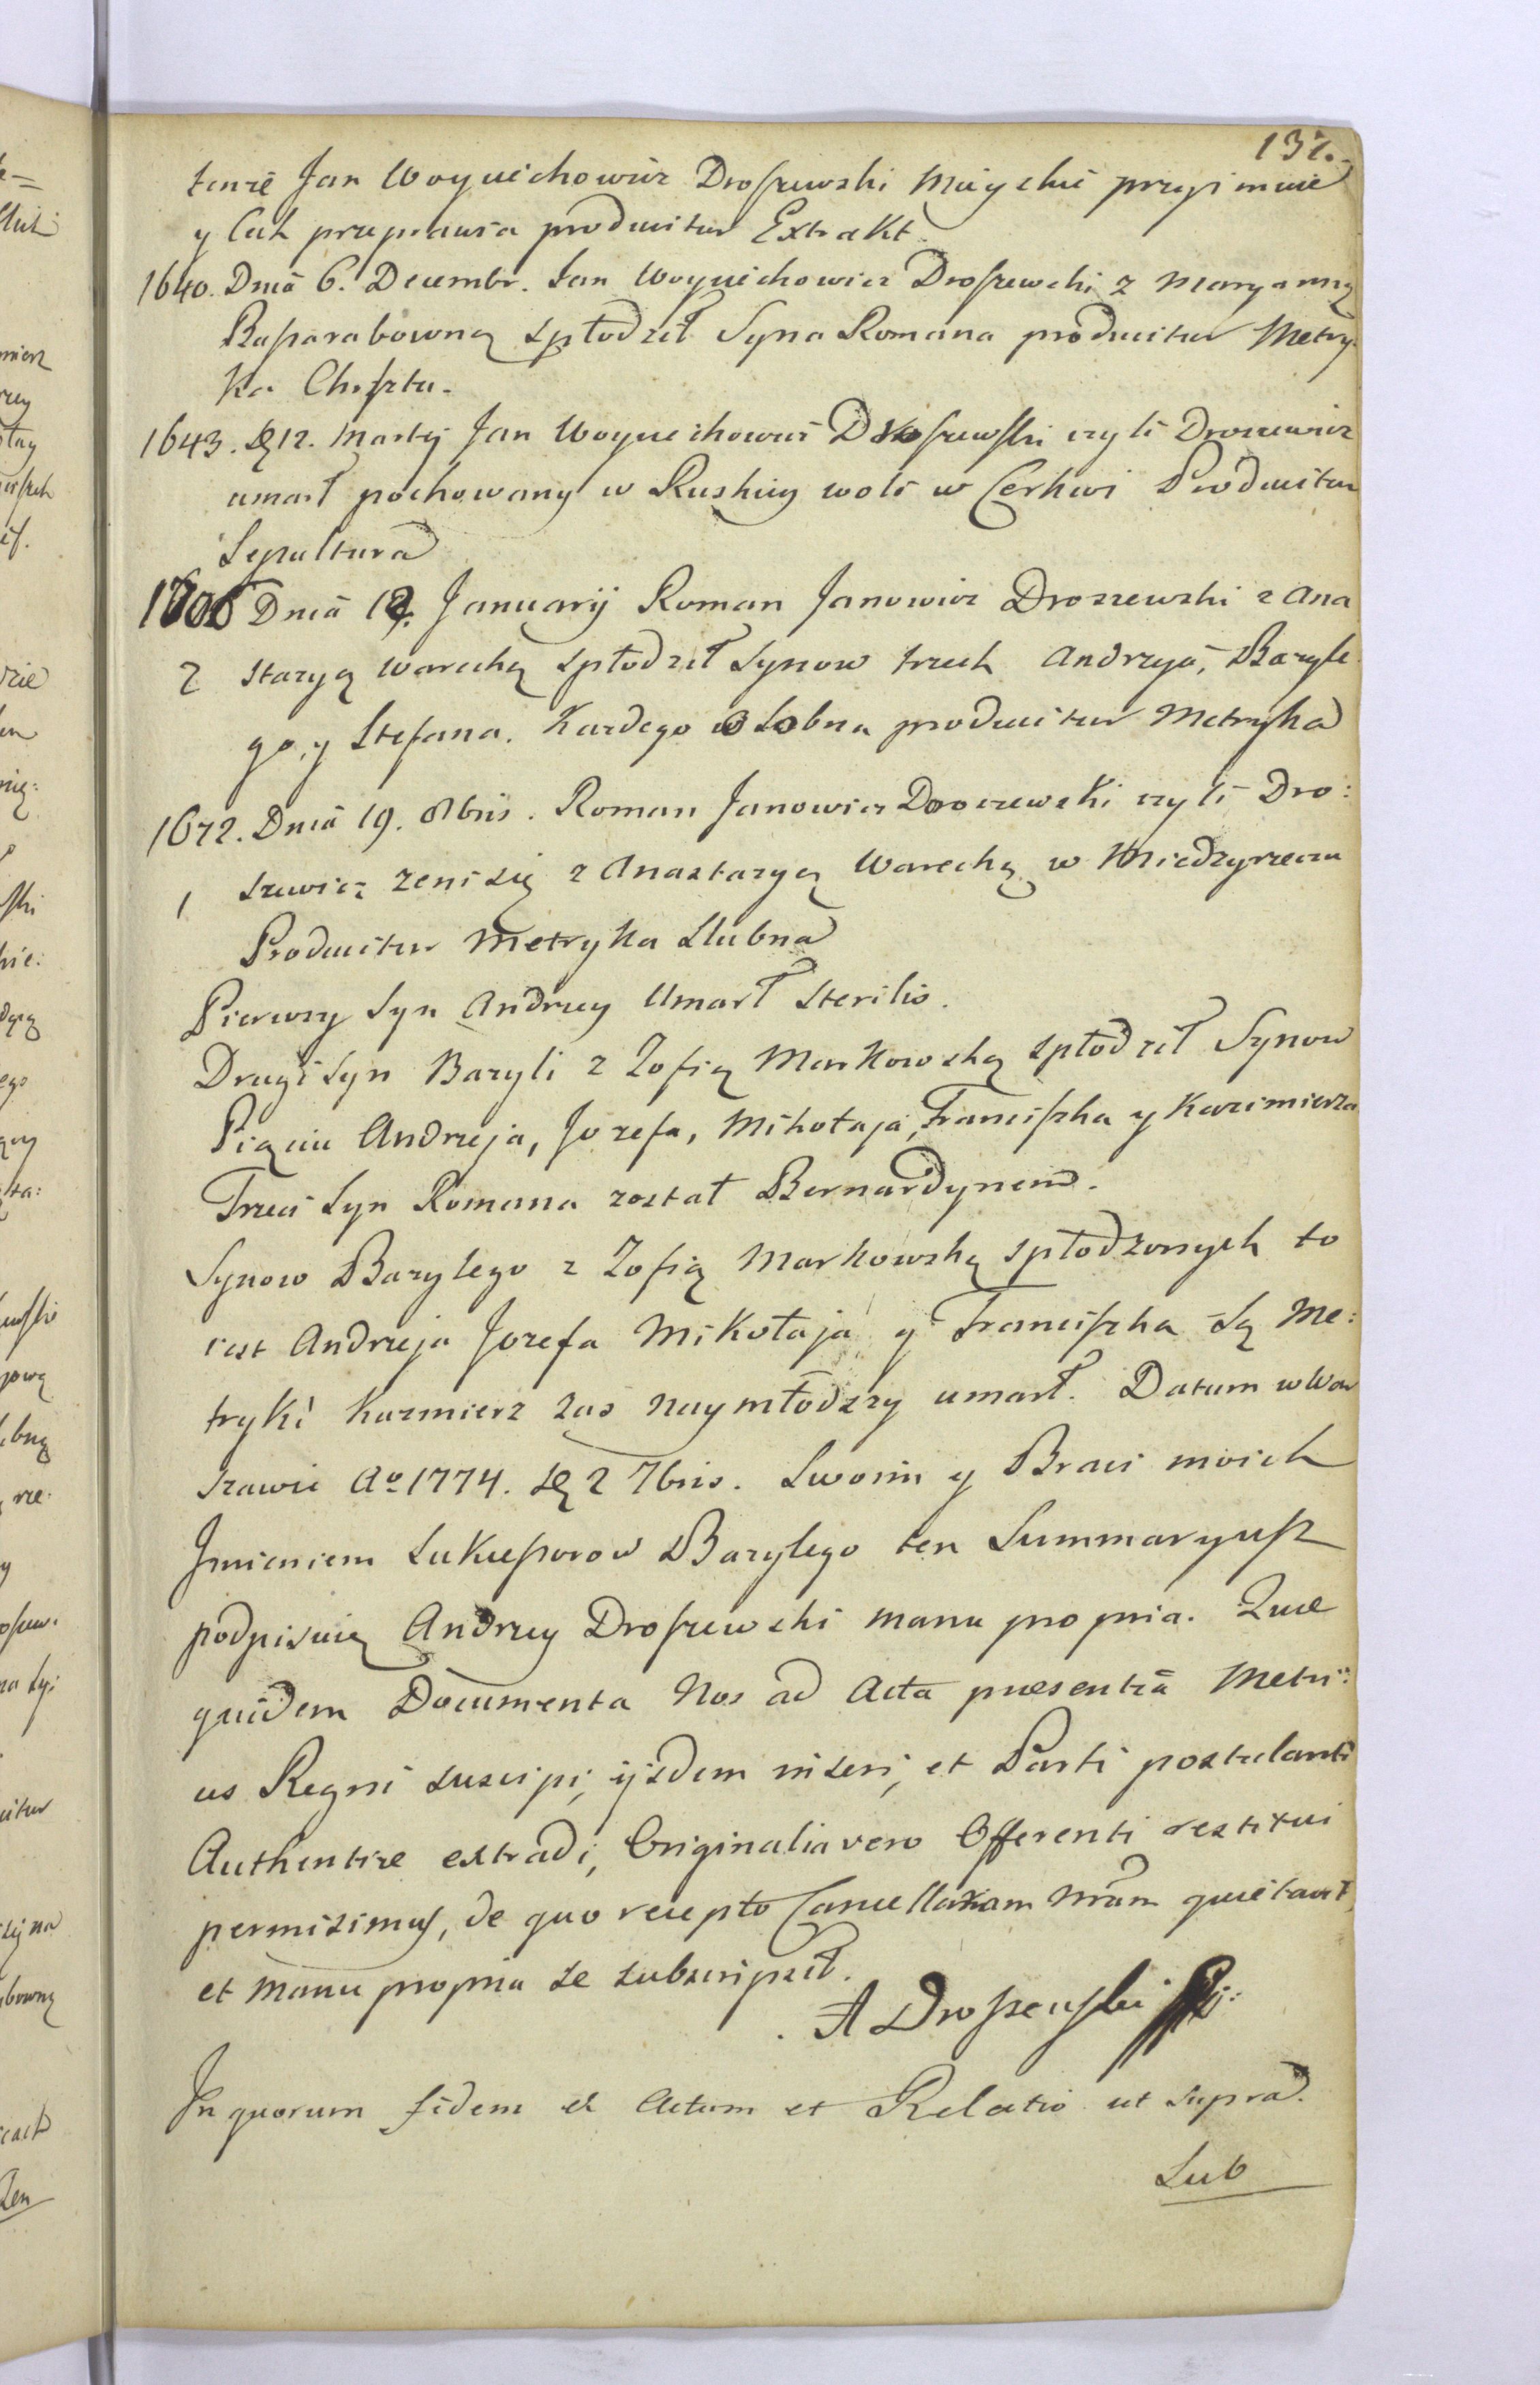 137.
tenże Jan Woyciechowicz Droszewski Mieyskie przyimuie
y Cech przeprawia producitur Extrakt
1640. Dniā 6. Decembr. Jan Woyciechowicz Droszewski z Maryanną
Baparabowną spłodził Syna Romana producitur Metry
ka Chrztu.
1643. D 12. Martij Jan Woyciechowicz Droszewski czyli Droszewicz
umarł pochowany w Ruskiey woli w Cerkwi Producitur
Sepultura
Dniā 19. Januarij Roman Janowicz Droszewski z Ana
2 stazyą Warechą spłodził Synow trzech Andrzeja, Bazyle
go, y Stefana. Kazdego osobna producitur Metryka
1672. Dniā 19. 8bris. Roman Janowicz Droszewski czyli Dro:
1 szewicz zeni się z Anastazyą Warechą w Miedzyrzeczu
Producitur Metryka Slubna
Pierwszy Syn Andrzey Umarł Sterilis.
Drugi Syn Bazyli z Zofią Markowską spłodził Synow
Pięciu Andrzeja, Jozefa, Mikołaja, Franciszka y Kazimierza
Trzeci Syn Romana został Bernardynem.
Synow Bazylego z Zofią Markowską spłodzonych to
iest Andrzeja Jozefa Mikołaja y Franciszka Są Me:
tryki Kazmierz zas naymłodszy umarł. Datum w War
szawie Aº 1774. D 2 7bris. Swoim y Braci moich
Jmieniem Sukcessorow Bazylego ten Summaryusz
podpisuię Andrzey Droszewski manu propria. Quæ
quidem Documenta Nos ad Acta præsentiā Metri:
ces Regni suscipi, ijsdem inseri, et Parti postulanti
Authentice extradi, Originalia vero Offerenti restitui
permisimus, de quo recepto Cancellariam Nrām quietavit,
et manu propria se subscripsit.
A Droszewski
In quorum fidem et Actum et Relatio ut supra.
Sub